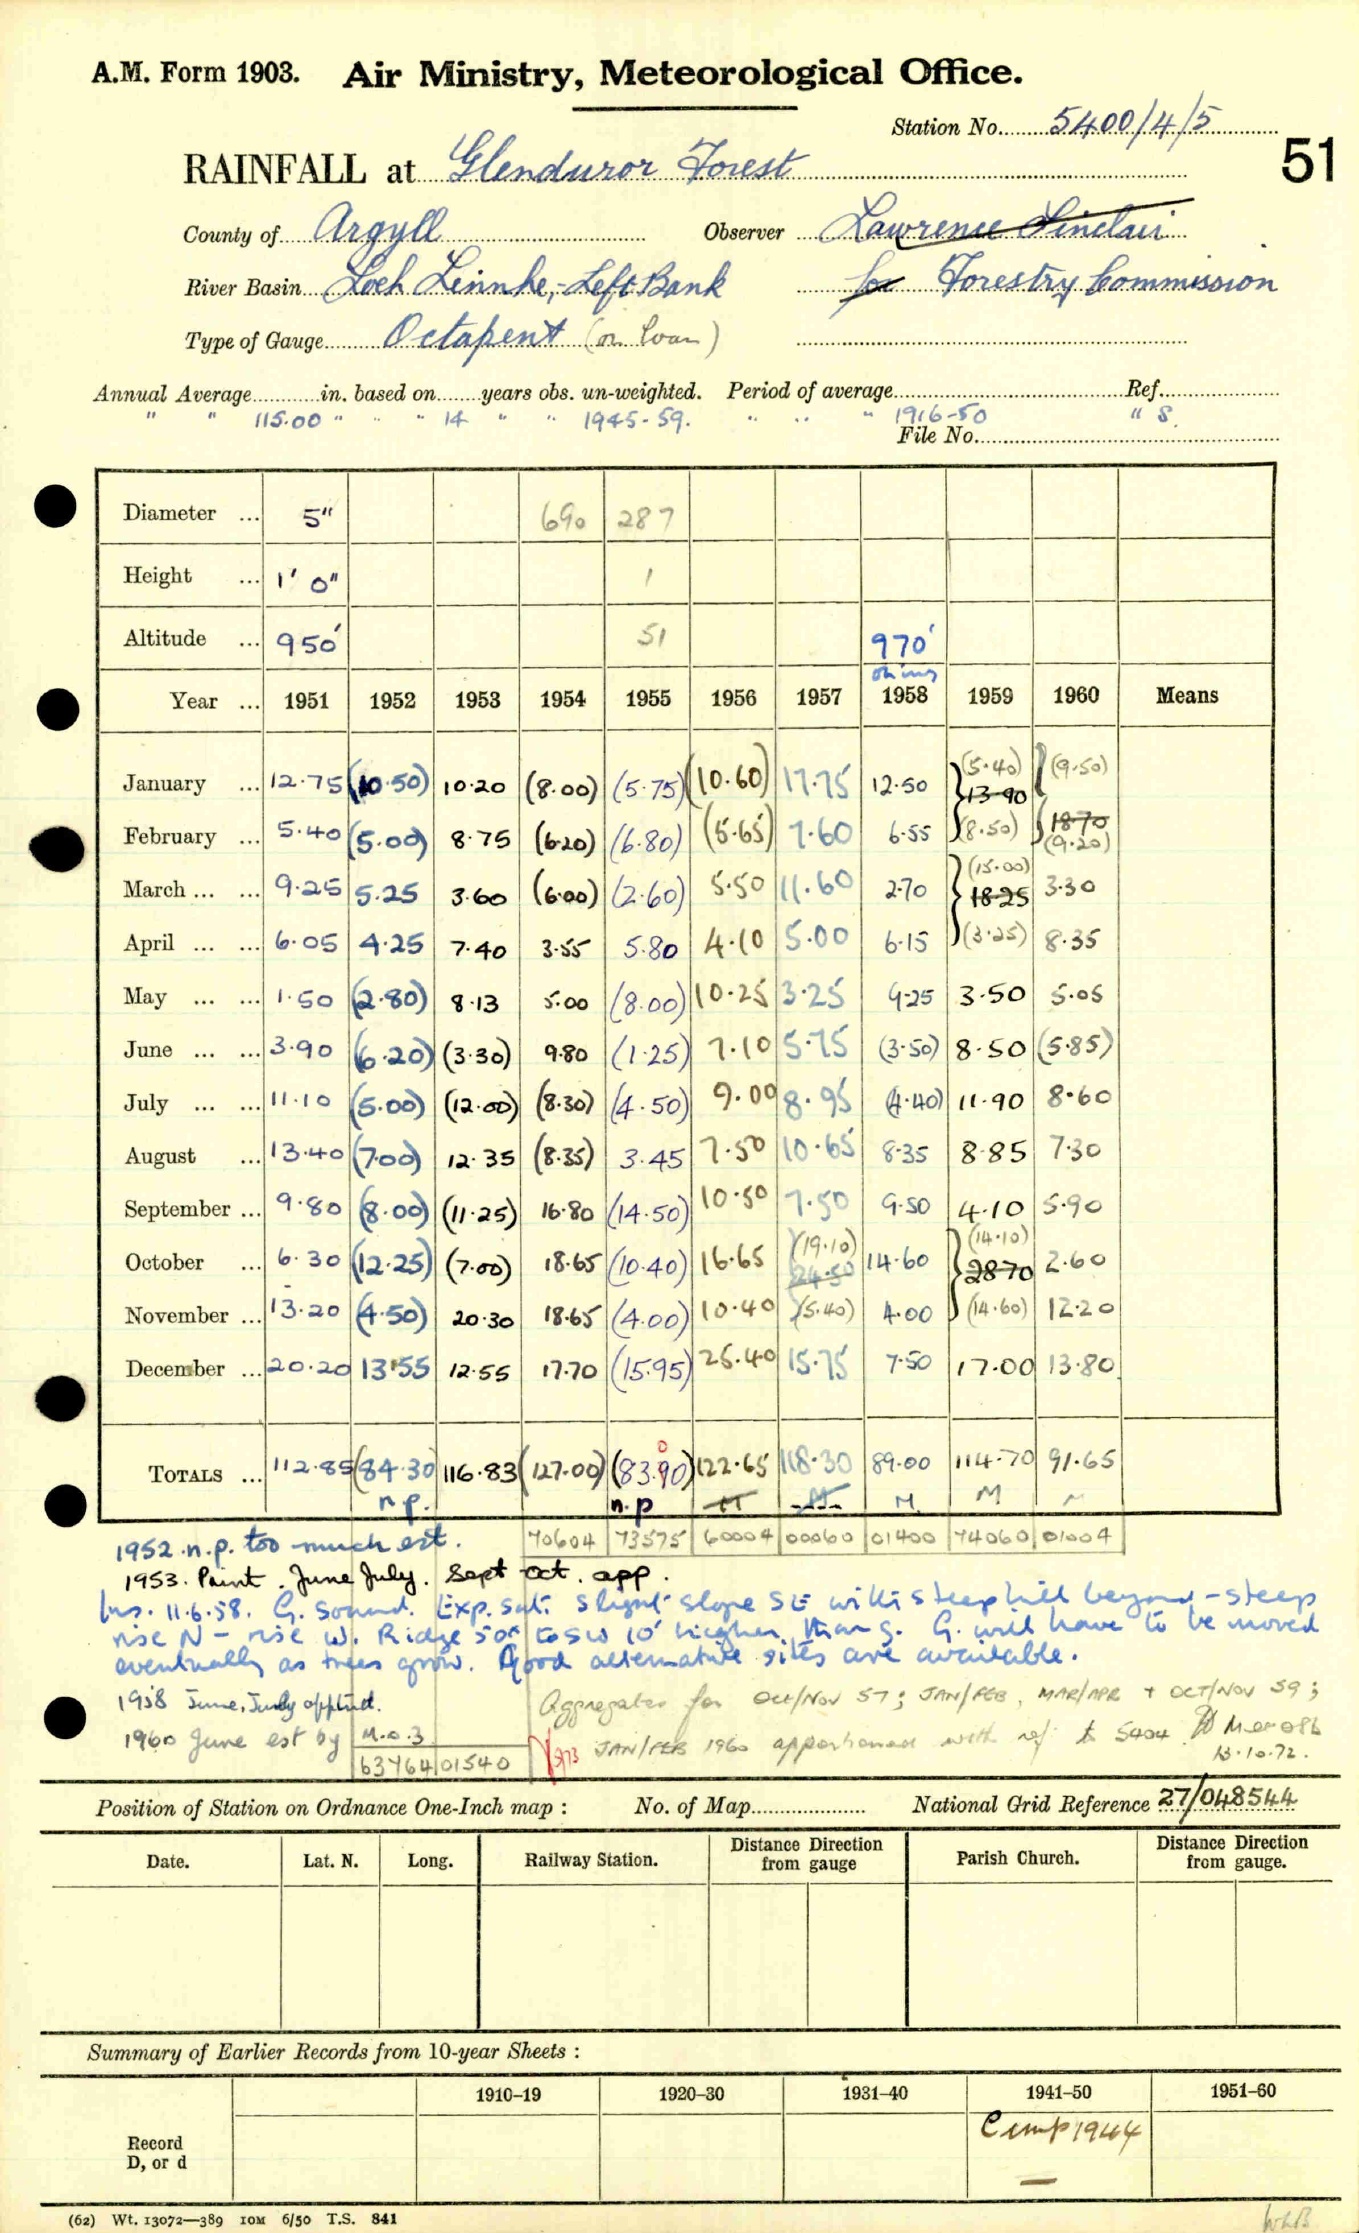 A.M. Form 1903. Air Ministry, Meteorological Office.
Station No. 5400/4/5
51
RAINFALL at Glenduror Forest
County of Argyll Observer Lawrence Sinclair
River Basin Loch Linnhe,-Left Bank for Forestry Commission
Type of Gauge Octapent (on loan)
Annual Average in. based on years obs. un-weighted. Period of average Ref.
" " 115.00 " " " 14 " " 1945-59. " " " 1916-50 " S.
File No.
Diameter ... 5" 690 287
Height ... 1' 0" 1
Altitude ... 950' 51 970'
on ins
Year ... 1951 1952 1953 1954 1955 1956 1957 1958 1959 1960 Means
January ... 12.75 (10.50) 10.20 (8.00) (5.75) (10.60) 17.75 12.50 (5.40) 13.90 (9.50)
February ... 5.40 (5.00) 8.75 (6.20) (6.80) (5.65) 7.60 6.55 (8.50) 18.70 (9.20)
March ... ... 9.25 5.25 3.60 (6.00) (2.60) 5.50 11.60 2.70 (15.00) 18.25 3.30
April ... ... 6.05 4.25 7.40 3.55 5.80 4.10 5.00 6.15 (3.25) 8.35
May ... ... 1.50 (2.80) 8.13 5.00 (8.00) 10.25 3.25 9.25 3.50 5.05
June ... ... 3.90 (6.20) (3.30) 9.80 (1.25) 7.10 5.75 (3.50) 8.50 (5.85)
July ... ... 11.10 (5.00) (12.00) (8.30) (4.50) 9.00 8.95 (4.40) 11.90 8.60
August ... 13.40 (7.00) 12.35 (8.35) 3.45 7.50 10.65 8.35 8.85 7.30
September ... 9.80 (8.00) (11.25) 16.80 (14.50) 10.50 7.50 9.50 4.10 5.90
October ... 6.30 (12.25) (7.00) 18.65 (10.40) 16.65 (19.10) 24.50 14.60 (14.10) 28.70 2.60
November ... 13.20 (4.50) 20.30 18.65 (4.00) 10.40 (5.40) 4.00 (14.60) 12.20
December ... 20.20 13.55 12.55 17.70 (15.95) 25.40 15.75 7.50 17.00 13.80
TOTALS ... 112.85 (84.30) 116.83 (127.00) (83.90) 122.65 118.30 89.00 114.70 91.65
0
n.p. n.p M M M M M
70604 73575 60004 00060 01400 74060 01004
1952 n.p. too much est.
1953. Paint. June July. Sept Oct. app.
Ins. 11.6.58. G. sound. Exp. sat: slight slope SE with steep hill beyond - steep
rise N - rise W. Ridge 50x to SW 10' higher than G. G. will have to be moved
eventually as trees grow. Good alternative sites are available.
1958 June, July apptnd. Aggregates for OCT/NOV 57; JAN/FEB, MAR/APR + OCT/NOV 59;
1960 June est by M.O.3 JAN/FEB 1960 apportioned with ref to 5404
13.10.72.
63764 01540
Position of Station on Ordnance One-Inch map : No. of Map National Grid Reference 27/048544
Date. Lat. N. Long. Railway Station. Distance Direction from gauge Parish Church. Distance Direction from gauge.
Summary of Earlier Records from 10-year Sheets :
1910–19 1920–30 1931–40 1941–50 1951–60
Record
D, or d
Cump 1944
—
(62) Wt. 13072—389 10M 6/50 T.S. 841